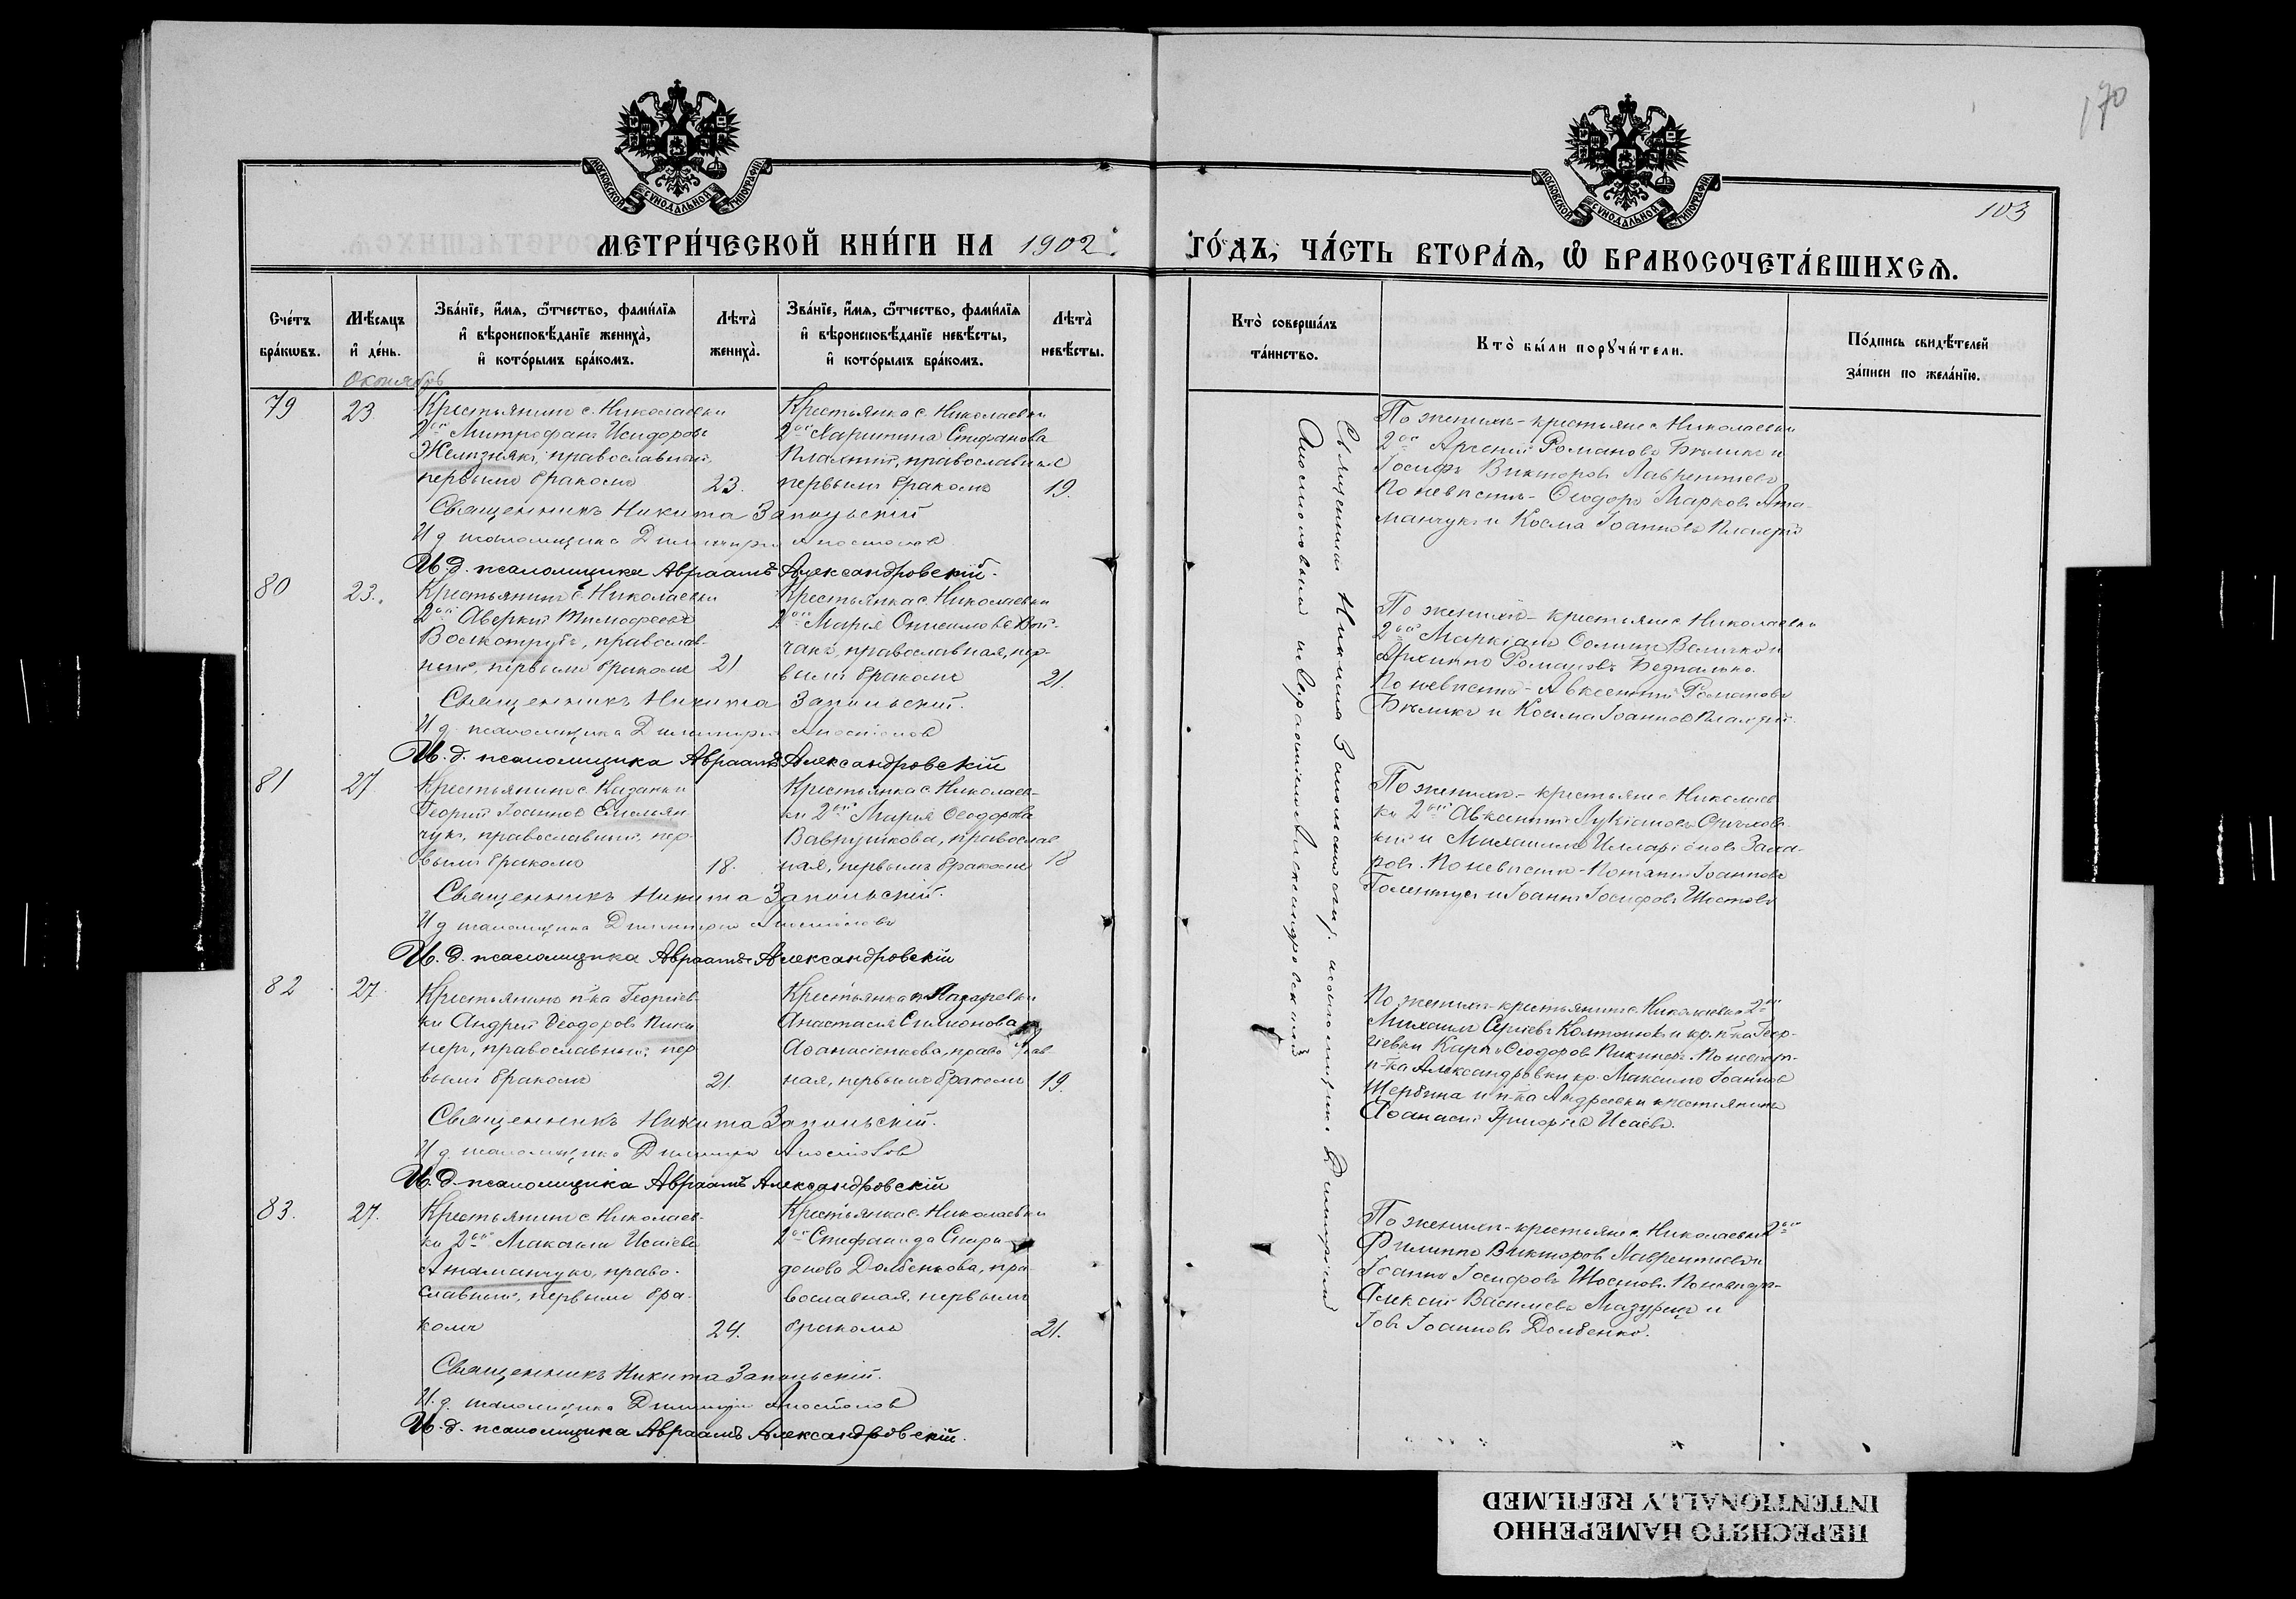 170
103
МОСКОВСКОЙ СѴНОДАЛЬНОЙ ТИПОГРАФІИ
МОСКОВСКОЙ СѴНОДАЛЬНОЙ ТИПОГРАФІИ
МЕТРИ́ЧЕСКОЙ КНИ́ГИ НА 1902
ГО́ДЪ, ЧА́СТЬ ВТОРА́Ѧ, Ѽ БРАКОСОЧЕТА́ВШИХСѦ.
Сче́тъ бра́кѡвъ.
Мѣ́сѧцъ и҆ де́нь.
Зва́нїе, и҆́мѧ, ѻ҆́тчество, фами́лїѧ
и҆ вѣроисповѣ́данїе жениха̀,
и҆ кото́рымъ бра́комъ.
Лѣта̀ жениха̀.
Зва́нїе, и҆́мѧ, ѻ҆́тчество, фами́лїѧ
и҆ вѣроисповѣ́данїе невѣ́сты,
и҆ кото́рымъ бра́комъ.
Лѣта̀ невѣ́сты.
Кто̀ соверша́лъ
та́инство.
Кто̀ бы́ли порꙋчи́тели.
По́дпись свидѣ́телей
за́писи по жела́нїю.
Октябрь
79
23.
Крестьянинъ с. Николаевки
2ой Митрофанъ Исидоровъ
Желизнякъ, православный,
первымъ бракомъ
23.
Крестьянка с. Николаевки
2ой Харитина Стефанова
Плахтій, православная
первымъ бракомъ
19.
По женихѣ - крестьяне с. Николаевки
2ой Арсеній Романовъ Бѣликъ и
Іосифъ Викторовъ Лаврентіевъ
По невѣстѣ - Ѳеодоръ Марковъ Ата-
манчукъ и Косма Іоанновъ Плахтій
Священникъ Никита Запольскій
И д псаломщика Димитрій Апостоловъ
И. д. псаломщика Авраамъ Александровскій.
80
23.
Крестьянинъ с. Николаевки
2ой Аверкій Тимоѳеевъ
Волкотрубъ, православ-
ный, первымъ бракомъ
21
Крестьянка с. Николаевки
2ой Марія Онисимова
чакъ, православная, пер-
вымъ бракомъ
21.
По женихѣ - крестьяне с. Николаевки
2ой Маркіанъ Величко и
Архиппъ Романовъ Безпалько.
По невѣстѣ - Авксентій Романовъ
Бѣликъ и Косма Іоанновъ Плахтій.
Священникъ Никита Запольскій.
И д псаломщика Димитрій Апостоловъ
И. д. псаломщика Авраамъ Александровскій
81
27
Крестьянинъ с. Казанки
Георгій Іоанновъ Емельян
чукъ, православный, пер
вымъ бракомъ
18.
Крестьянка с. Николаев-
ки 2ой Марія Ѳеодорова
Ваврушкова, православ
ная, первымъ бракомъ
18
По женихѣ - крестьяне с. Николаев
ки 2ой Авксентій Лукіановъ
кій и Михаилъ Илларіоновъ Заха-
ровъ. По невѣстѣ - Потапій Іоанновъ
и Іоаннъ Іосифовъ Шостовъ
Священникъ Никита Запольскій.
И д псаломщика Димитрій Апостоловъ
И. д. псаломщика Авраамъ Александровскій
82
27
Крестьянинъ п-ка Георгіев-
ки Андрей Ѳеодоровъ Пики
неръ, православный, пер
вымъ бракомъ
21.
Крестьянка п. Лазаревки
Анастасія Симіонова
Аѳанасіенкова, православ-
ная, первымъ бракомъ
19.
По женихѣ - крестьянинъ с. Николаевки 2ой
Михаилъ Сергіевъ и кр. п-ка Геор-
гіевки Карпъ Ѳеодоровъ Пикинеръ. По невѣстѣ-
п-ка Александровки кр. Максимъ Іоанновъ
Щербина и п-ка Андреевки крестьянинъ
Аѳанасій Григоріевъ Исаевъ.
Священникъ Никита Запольскій.
И д. псаломщика Димитрій Апостоловъ
И. д. псаломщика Авраамъ Александровскій
83.
27.
Крестьянинъ с. Николаев-
ки 2ой Максимъ Исаіевъ
Атаманчукъ, право-
славный, первымъ бра-
комъ
24.
Крестьянка с. Николаевки
2ой Стефанида Спири-
донова Долбенкова, пра
вославная, первымъ
бракомъ
21.
По женихѣ - крестьяне с. Николаевки 2ой
Филиппъ Викторовъ Лаврентіевъ и
Іоаннъ Іосифовъ Шостовъ. По невѣстѣ-
Алексій Васильевъ Мазурецъ и
Іовъ Іоанновъ Долбенко.
Священникъ Никита Запольскій.
И. д. псаломщика Димитрій Апостоловъ
И. д. псаломщика Авраамъ Александровскій.
Священникъ Никита Запольскій съ и. д. псаломщика Димитріемъ
Апостоловымъ и Авраамомъ Александровскимъ
ПЕРЕСНЯТО НАМЕРЕННО
INTENTIONALLY REFILMED